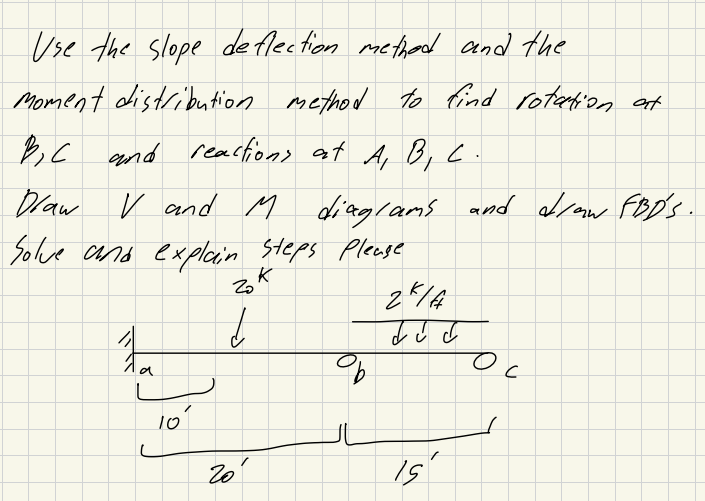 Use the slope deflection method and the
moment distribution method to find rotation at
B, C and reactions at A, B, C.
Draw V and M diagrams and draw FBD's.
Solve and explain steps please
20 K
2 K/ft
a
b
c
10'
20'
15'